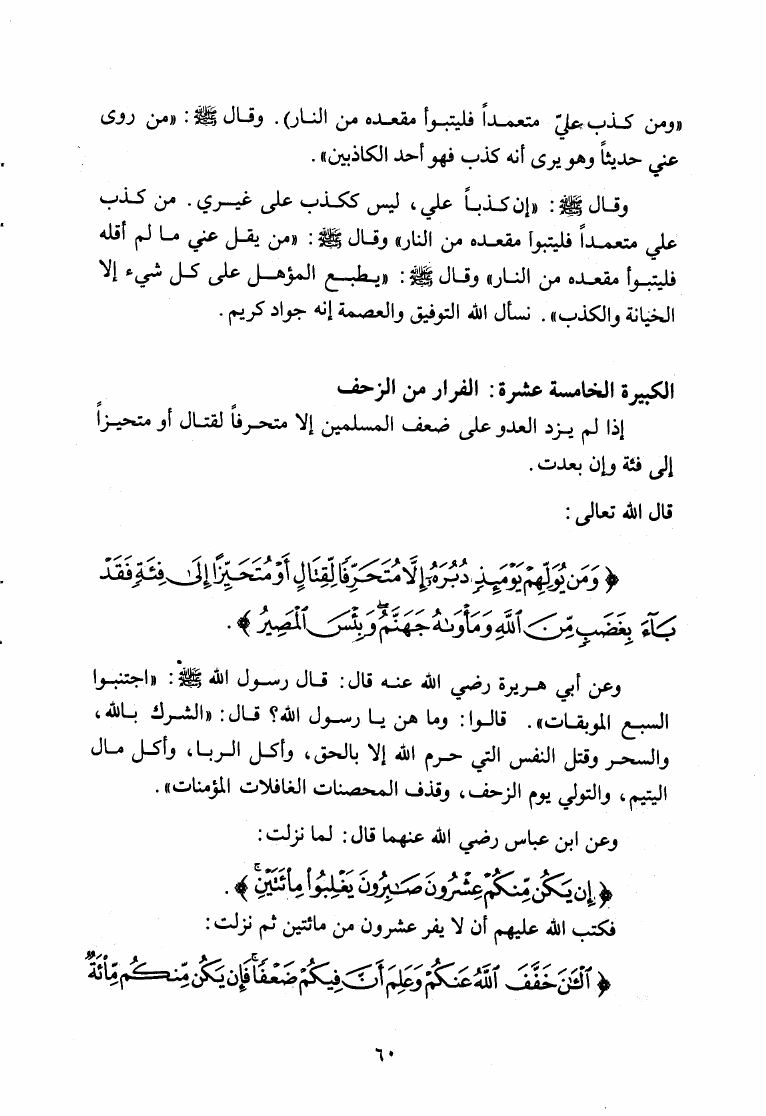 «ومن كذب عليّ متعمداً فليتبوأ مقعده من النار). وقال ﷺ: «من روى
عني حديثاً وهو يرى أنه كذب فهو أحد الكاذبين».
وقال ﷺ: «إن كذباً علي، ليس ككذب على غيري. من كذب
علي متعمداً فليتبوأ مقعده من النار» وقال ﷺ: «من يقل عني ما لم أقله
فليتبوأ مقعده من النار» وقال ﷺ: «يطبع المؤهل على كل شيء إلا
الخيانة والكذب». نسأل الله التوفيق والعصمة إنه جواد كريم.
الكبيرة الخامسة عشرة: الفرار من الزحف
إذا لم يزد العدو على ضعف المسلمين إلا متحرفاً لقتال أو متحيزاً
إلى فئة وإن بعدت.
قال الله تعالى:
﴿ وَمَن يُوَلِّهِمْ يَوْمَئِذٍ دُبُرَهُۥٓ إِلَّا مُتَحَرِّفًا لِّقِتَالٍ أَوْ مُتَحَيِّزًا إِلَىٰ فِئَةٍ فَقَدْ
بَآءَ بِغَضَبٍ مِّنَ ٱللَّهِ وَمَأْوَىٰهُ جَهَنَّمُ ۖ وَبِئْسَ ٱلْمَصِيرُ ﴾.
وعن أبي هريرة رضي الله عنه قال: قال رسول الله ﷺ: «اجتنبوا
السبع الموبقات». قالوا: وما هن يا رسول الله؟ قال: «الشرك بالله،
والسحر وقتل النفس التي حرم الله إلا بالحق، وأكل الربا، وأكل مال
اليتيم، والتولي يوم الزحف، وقذف المحصنات الغافلات المؤمنات».
وعن ابن عباس رضي الله عنهما قال: لما نزلت:
﴿ إِن يَكُن مِّنكُمْ عِشْرُونَ صَٰبِرُونَ يَغْلِبُوا۟ مِا۟ئَتَيْنِ ۚ ﴾.
فكتب الله عليهم أن لا يفر عشرون من مائتين ثم نزلت:
﴿ ٱلْـَٰٔنَ خَفَّفَ ٱللَّهُ عَنكُمْ وَعَلِمَ أَنَّ فِيكُمْ ضَعْفًا ۚ فَإِن يَكُن مِّنكُم مِّا۟ئَةٌ
٦٠